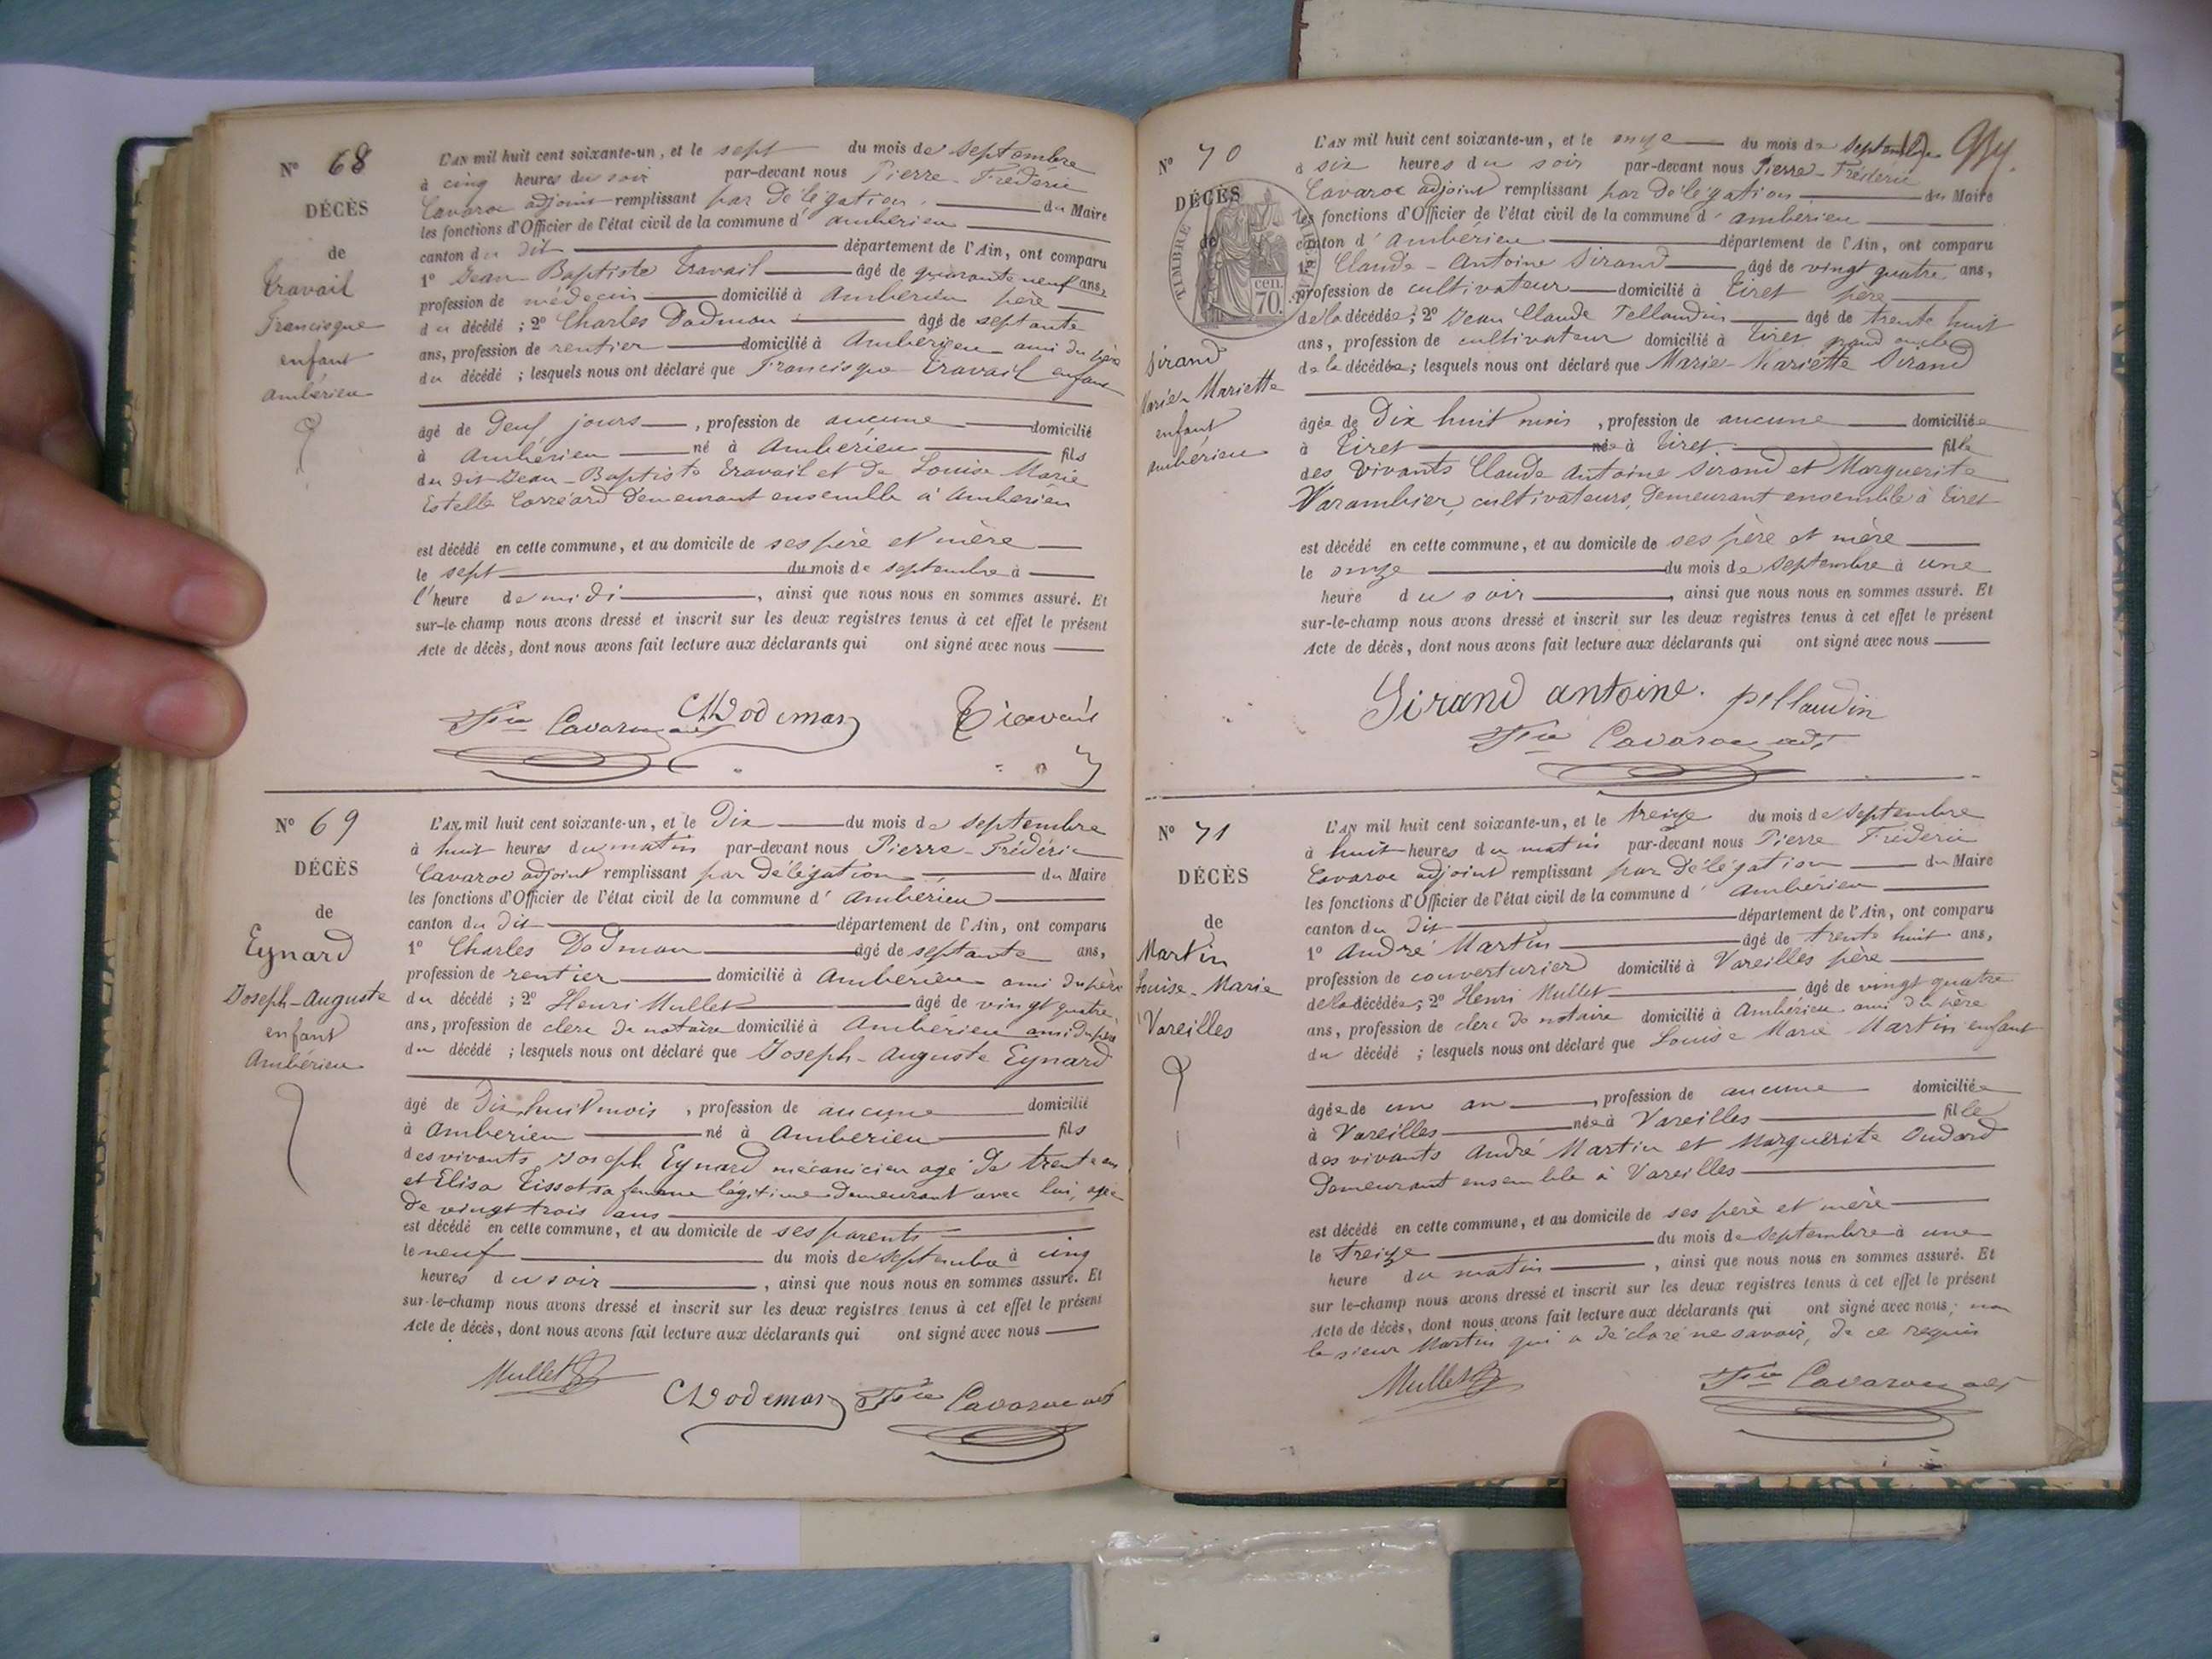 N° 68
DÉCÈS
de
Travail
Francisque
enfant
Ambérieu
L'AN mil huit cent soixante-un, et le sept du mois de septembre
à cinq heures du soir par-devant nous Pierre-Fréderic
Cavaroc adjoint remplissant par délégation du Maire
les fonctions d'Officier de l'état civil de la commune d'ambérieu
canton du dit département de l'Ain, ont comparu
1° Jean-Baptiste Travail âgé de quarante neuf ans,
profession de médecin domicilié à Ambérieu père
du décédé ; 2° Charles Dodmon âgé de septante
ans, profession de rentier domicilié à Ambérieu ami du père
du décédé ; lesquels nous ont déclaré que Francisque Travail enfant
âgé de jours , profession de aucune domicilié
à Ambérieu né à Ambérieu fils
du dit Jean-Baptiste Travail et de Louise Marie
Estelle Corréard demeurant ensemble à Ambérieu
est décédé en cette commune, et au domicile de ses père et mère
le sept du mois de septembre à
l'heure de midi , ainsi que nous nous en sommes assuré. Et
sur-le-champ nous avons dressé et inscrit sur les deux registres tenus à cet effet le présent
Acte de décès, dont nous avons fait lecture aux déclarants qui ont signé avec nous
Cavaroc adj Travail
N° 69
DÉCÈS
de
Eynard
Joseph-Auguste
enfant
Ambérieu
L'AN mil huit cent soixante-un, et le Dix du mois de septembre
à huit heures du matin par-devant nous Pierre-Frédéric
Cavaroc adjoint remplissant par délégation du Maire
les fonctions d'Officier de l'état civil de la commune d'ambérieu
canton du dit département de l'Ain, ont comparu
1° Charles Dodmon âgé de septante ans,
profession de rentier domicilié à Ambérieu ami du père
du décédé ; 2° Henri Mullet âgé de vingt quatre
ans, profession de clerc de notaire domicilié à Ambérieu ami du père
du décédé ; lesquels nous ont déclaré que Joseph-Auguste Eynard
âgé de Dix huit mois , profession de aucune domicilié
à Ambérieu né à Ambérieu fils
des vivants Joseph Eynard mécanicien agé de trente ans
et Elisa Tissot sa femme légitime demeurant avec lui, agée
de vingt trois ans
est décédé en cette commune, et au domicile de ses parents
le neuf du mois de septembre à cinq
heures du soir , ainsi que nous nous en sommes assuré. Et
sur-le-champ nous avons dressé et inscrit sur les deux registres tenus à cet effet le présent
Acte de décès, dont nous avons fait lecture aux déclarants qui ont signé avec nous
Mullet Cavaroc adj
N° 70
DÉCÈS
de
TIMBRE
70.
cen.
Sirand
Marie-Mariette
enfant
ambérieu
L'AN mil huit cent soixante-un, et le onze du mois de septembre
à six heures du soir par-devant nous Pierre-Fréderic
Cavaroc adjoint remplissant par délégation du Maire
les fonctions d'Officier de l'état civil de la commune d'ambérieu
canton d'Ambérieu département de l'Ain, ont comparu
1° Claude-Antoine Sirand âgé de vingt quatre ans,
profession de cultivateur domicilié à Tiret père
de la décédée ; 2° Jean Claude Pellaudin âgé de trente huit
ans, profession de cultivateur domicilié à Tiret grand oncle
de la décédée ; lesquels nous ont déclaré que Marie-Mariette Sirand
âgée de Dix huit mois , profession de aucune domiciliée
à Tiret née à Tiret fille
des vivants Claude Antoine Sirand et Marguerite
Varambier, cultivateurs, demeurant ensemble à Tiret
est décédé en cette commune, et au domicile de ses père et mère
le onze du mois de septembre à une
heure du soir , ainsi que nous nous en sommes assuré. Et
sur-le-champ nous avons dressé et inscrit sur les deux registres tenus à cet effet le présent
Acte de décès, dont nous avons fait lecture aux déclarants qui ont signé avec nous
Sirand antoine. pellaudin
Cavaroc adj
N° 71
DÉCÈS
de
Martin
Louise-Marie
Vareilles
L'AN mil huit cent soixante-un, et le treize du mois de septembre
à huit heures du matin par-devant nous Pierre Fréderic
Cavaroc adjoint remplissant par délégation du Maire
les fonctions d'Officier de l'état civil de la commune d'Ambérieu
canton du Dit département de l'Ain, ont comparu
1° André Martin âgé de trente huit ans,
profession de couverturier domicilié à Vareilles père
de la décédée ; 2° Henri Mullet âgé de vingt quatre
ans, profession de clerc de notaire domicilié à Ambérieu ami du père
du décédé ; lesquels nous ont déclaré que Louise Marie Martin enfant
âgée de un an , profession de aucune domiciliée
à Vareilles née à Vareilles fille
des vivants André Martin et Marguerite Oudard
demeurant ensemble à Vareilles
est décédé en cette commune, et au domicile de ses père et mère
le treize du mois de septembre à une
heure du matin , ainsi que nous nous en sommes assuré. Et
sur le-champ nous avons dressé et inscrit sur les deux registres tenus à cet effet le présent
Acte de décès, dont nous avons fait lecture aux déclarants qui ont signé avec nous, non
le sieur Martin qui a déclaré ne savoir, de ce requis
Mullet Cavaroc adj